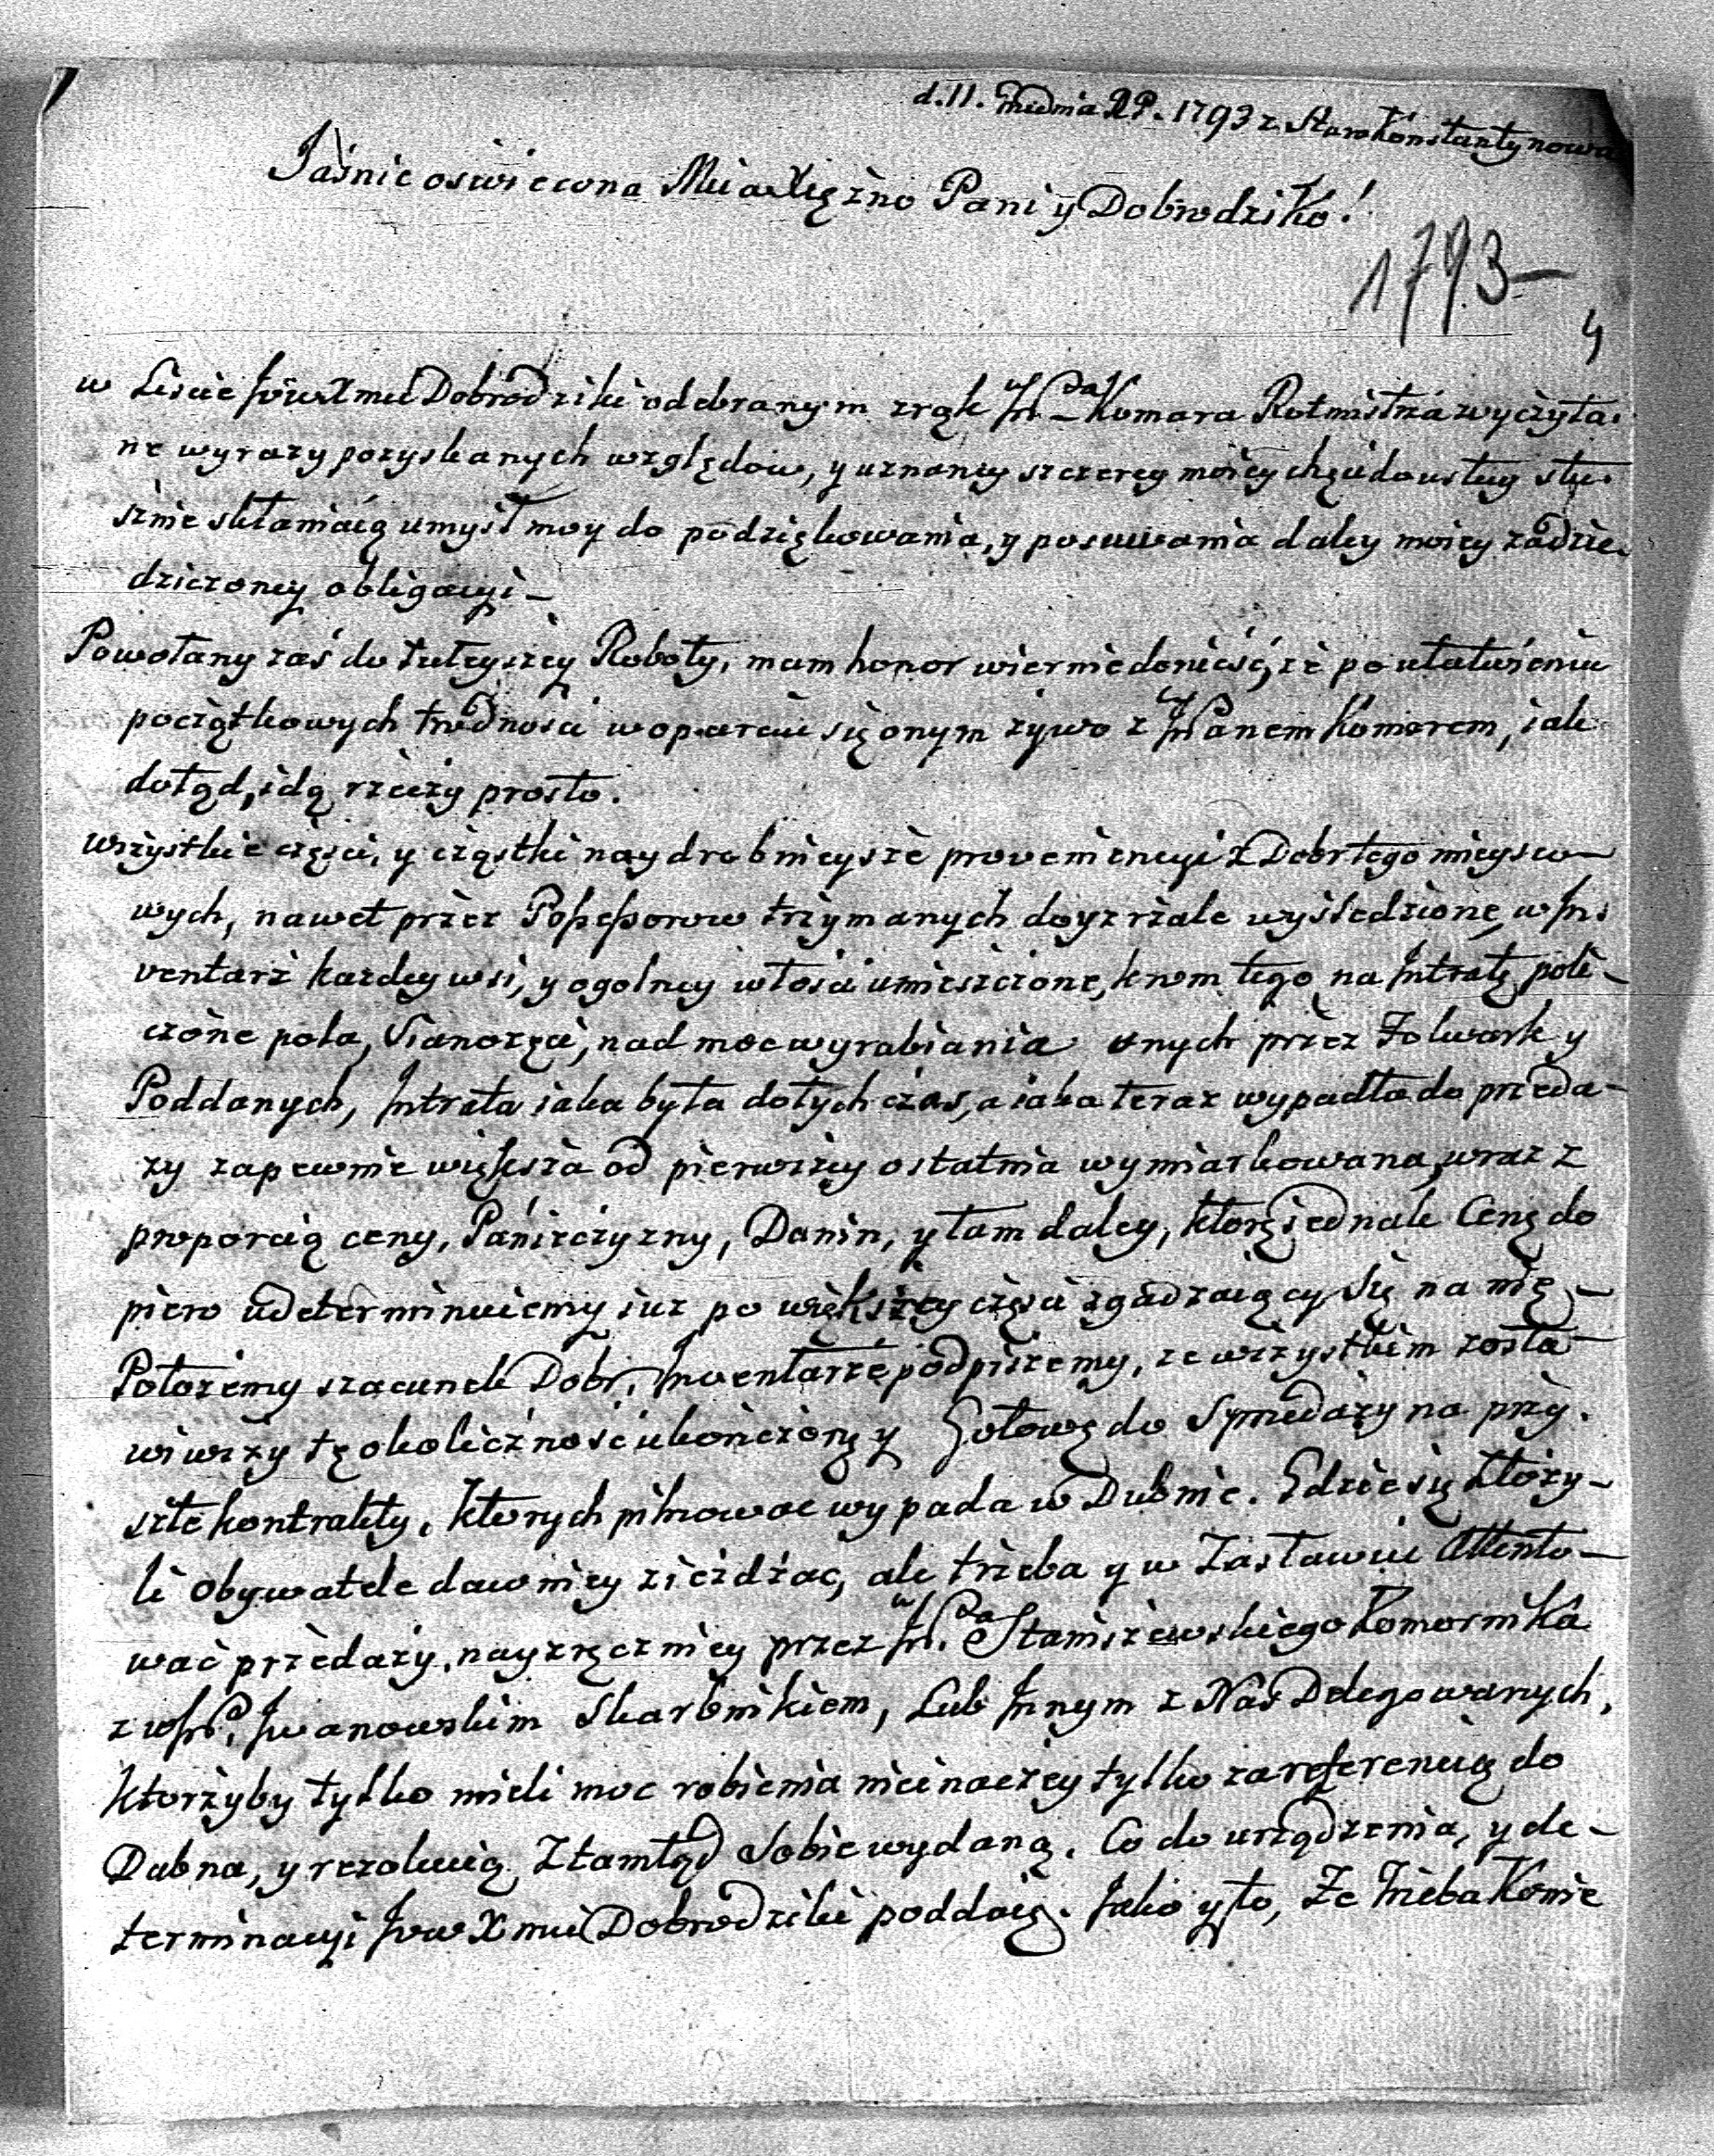 d. 11. Grudnia R P. 1793 z Starokonstantynowa
Jaśnie oswiecona Mcia Xiężno Pani y Dobrodziko!
1793 —
4
w Liscie JOWXmci Dobrodziki odebranym z rąk Komara Rotmistrza wyczyta-
ne wyrazy pozyskanych względow, y uznaney szczerey moiey chęci do usług słu-
sznie skłaniaią umysł moy do podziękowania, y posuwania daley moiey zadzie-
dziczoney obligacyi —
Powołany zaś do tuteyszey Roboty, mam honor wiernie donieść, że po ułatwieniu
początkowych trudnosci w oparciu się onym żywo z Panem Komarem, iak
dotąd, idą rzeczy prosto.
wszystkie części, y cząstki naydrobnieysze proveniencyi z Dobr tego mieysco-
wych, nawet przez Possessorow trzymanych doyzrzale wyśledzione, w In-
ventarz każdey wsi, y ogolney włości umieszczone, krom tego na Intratę poli-
czone pola, Sianożęci, nad moc wyrabiania onych przez Folwark y
Poddanych, Intrata iaka była dotychczas, a iaka teraz wypadła do przeda-
ży zapewnie większa od pierwszey ostatnia wymiarkowana, wraz z
proporcią ceny, Pańszczyzny, Danin, y tam daley, ktorę iednak Cenę do
piero udeterminuiemy iuż po większey części zgadzaiący się na nię —
Położemy szacunek Dobr, Inventarze podpiszemy, ze wszystkiem zosta-
wiwszy tę okoliczność ukończonę y Gotowę do Sprzedaży na przy-
szłe kontrakty, ktorych pilnować wypada w Dubnie. Gdzie się
li Obywatele dawniey zieżdżac, ale trzeba y w Zasławiu Attento-
wać przedaży, nayzręczniey przez Staniszewskiego Komornika
z Iwanowskim Skarbnikiem, Lub Innym z Nas Delegowanych,
ktorzyby tylko mieli moc robienia nieinaczey tylko za referencią do
Dubna, y rezolucią Ztamtąd Sobie wydaną. Co do urządzenia, y de-
terminacyi JOWXmci Dobrodziki poddaię. Jako y to, Że trzeba Konie